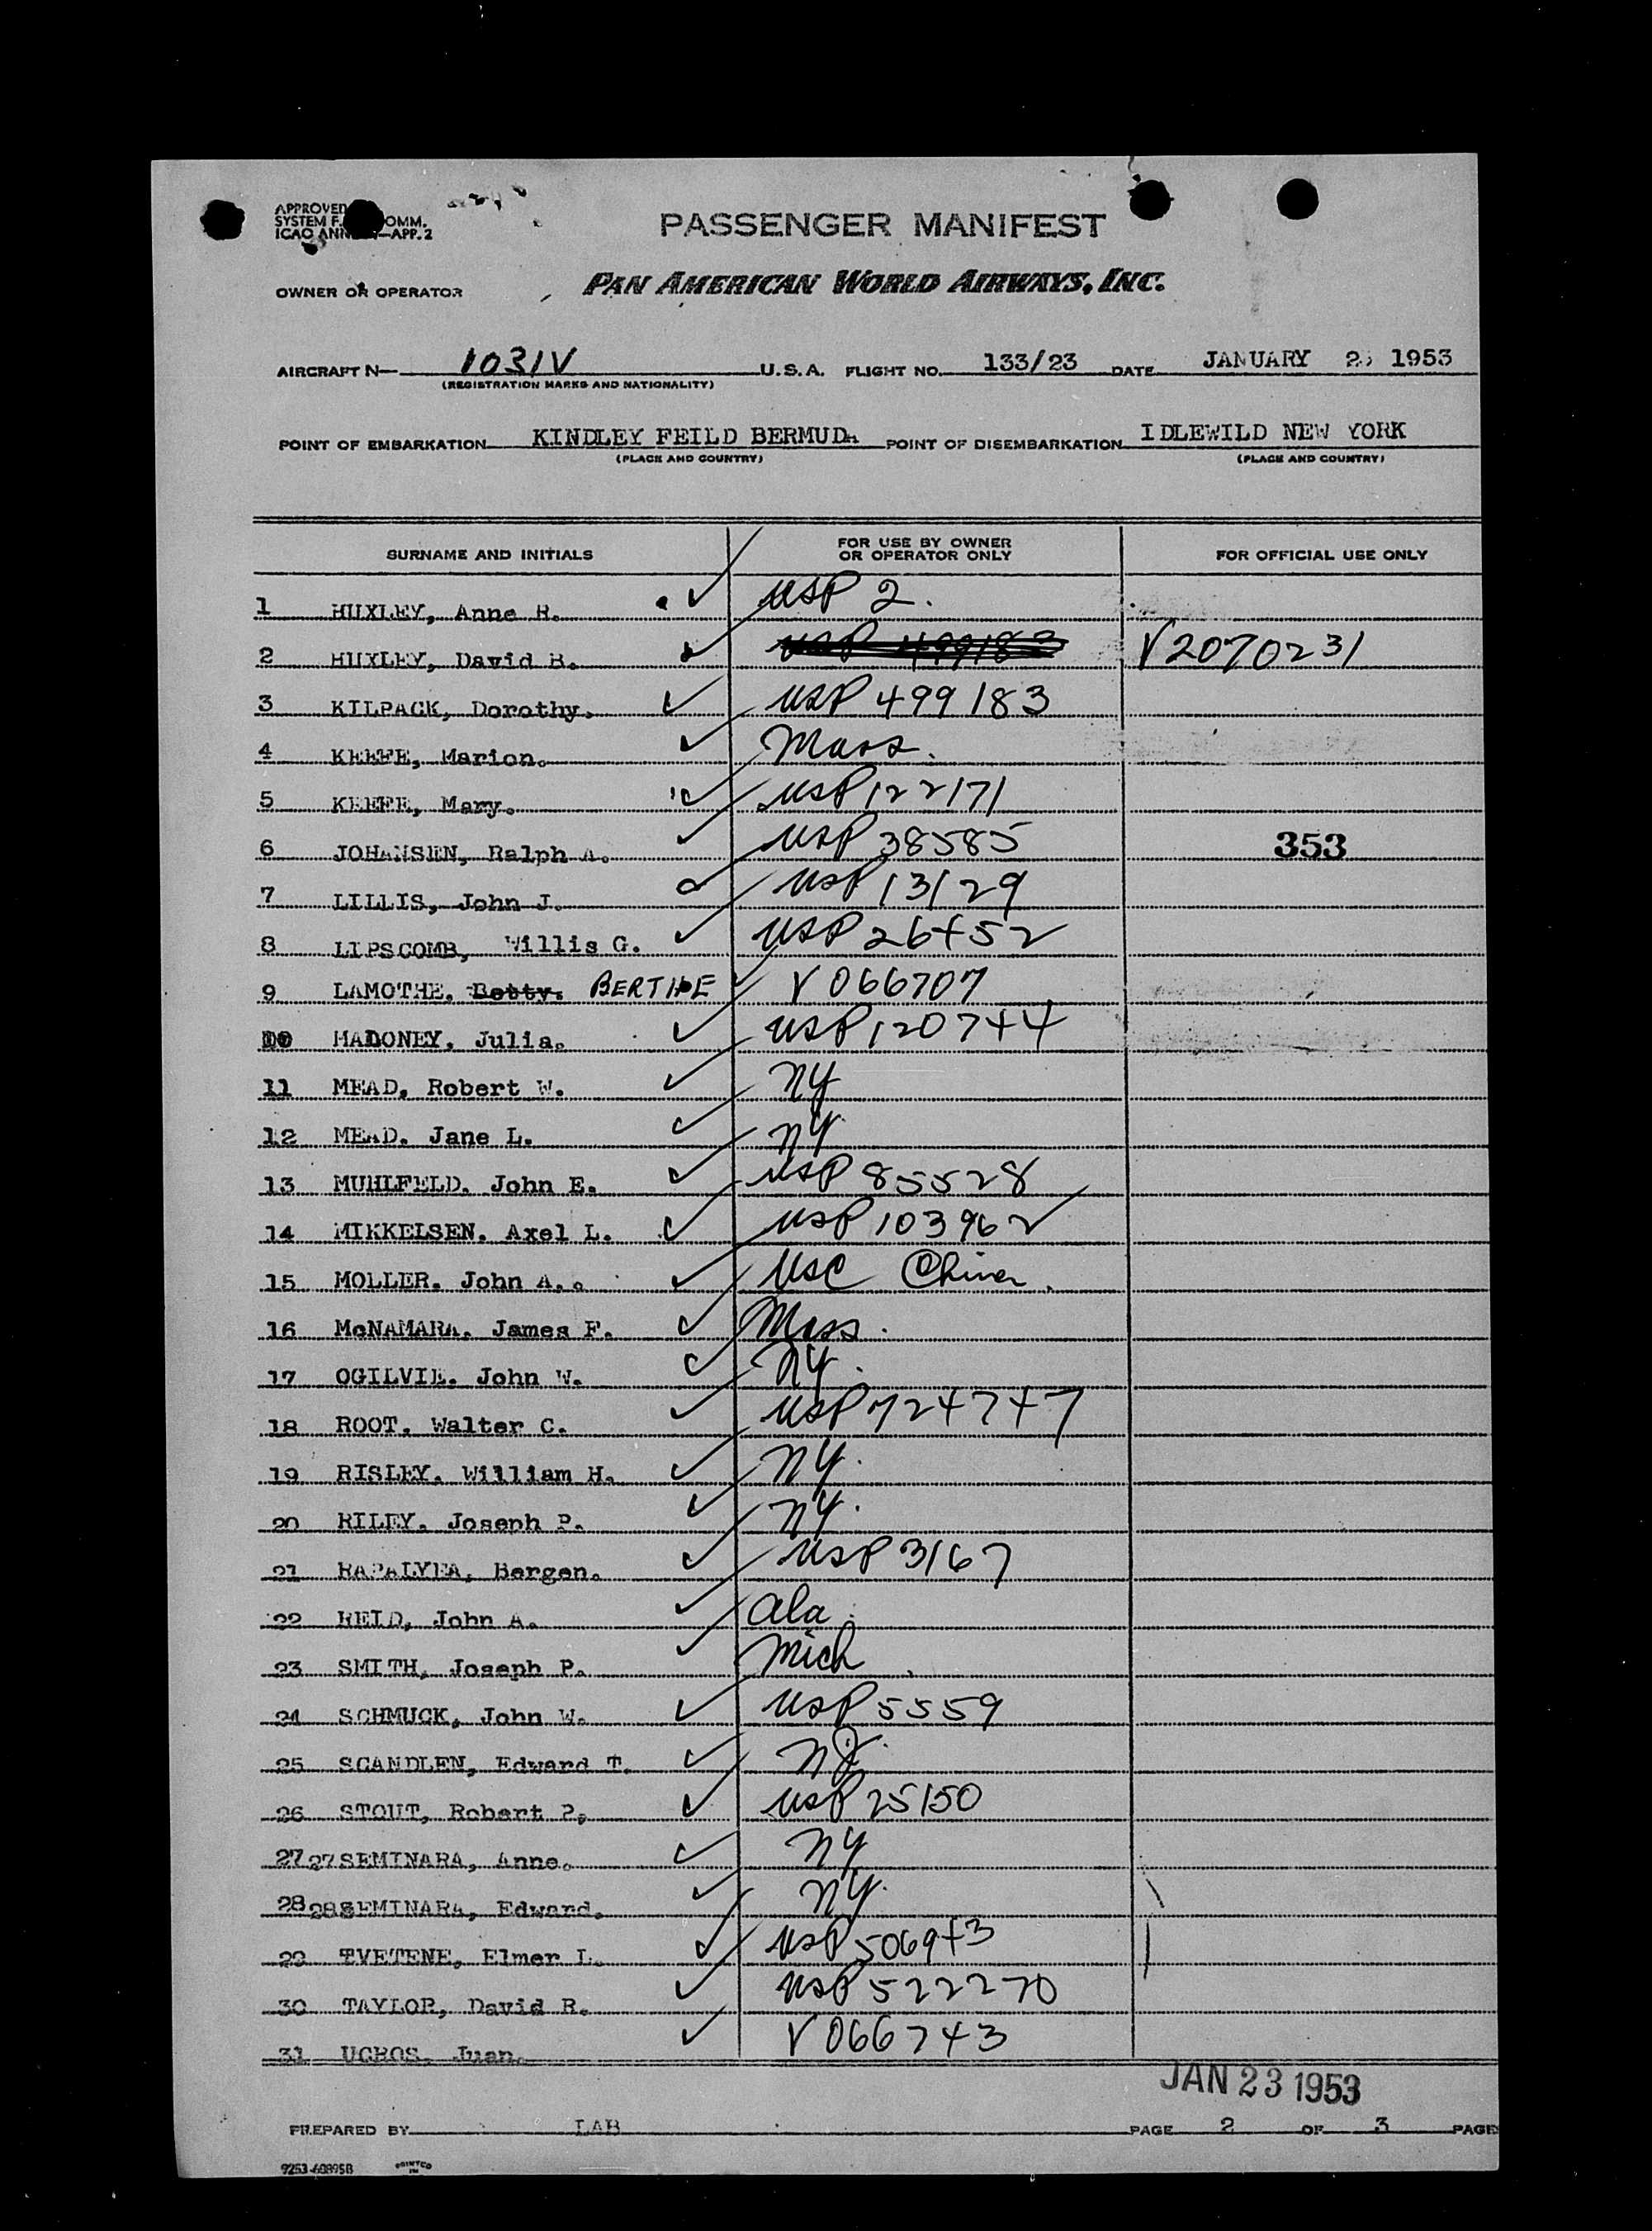 APPROVED
SYSTEM F. OMM.
ICAO ANN —APP. 2
PASSENGER MANIFEST
OWNER OR OPERATOR PAN AMERICAN WORLD AIRWAYS, INC.
AIRCRAFT N— 1031V U.S.A. FLIGHT NO. 133/23 DATE JANUARY 23 1953
(REGISTRATION MARKS AND NATIONALITY)
POINT OF EMBARKATION KINDLEY FEILD BERMUDA POINT OF DISEMBARKATION IDLEWILD NEW YORK
(PLACE AND COUNTRY) (PLACE AND COUNTRY)
SURNAME AND INITIALS FOR USE BY OWNER OR OPERATOR ONLY FOR OFFICIAL USE ONLY
1 HUXLEY, Anne H. USP 2.
2 HUXLEY, David B. USP 499183 V2070231
3 KILPACK, Dorothy. USP 499183
4 KEEFE, Marion. Mass.
5 KEEFE, Mary. USP 122171
6 JOHANSEN, Ralph A. USP 38585 353
7 LILLIS, John J. USP 13129
8 LIPSCOMB, Willis G. USP 26452
9 LAMOTHE, Betty. BERTHE V 066707
10 MADONEY, Julia. USP 120744
11 MEAD, Robert W. NY
12 MEAD. Jane L. NY
13 MUHLFELD. John E. USP 85528
14 MIKKELSEN. Axel L. USP 103962
15 MOLLER. John A.. USC China.
16 McNAMARA. James F. Mass.
17 OGILVIE. John W. NY.
18 ROOT. Walter C. USP 724747
19 RISLEY. William H. NY.
20 RILEY. Joseph P. NY.
21 RAPALYEA, Bergen. USP 3167
22 REID, John A. Ala.
23 SMITH, Joseph P. Mich
24 SCHMUCK, John W. USP 5559
25 SCANDLEN, Edward T. NJ.
26 STOUT, Robert P, USP 25150
27 27 SEMINARA, Anne. NY
28 28 SEMINARA, Edward. NY.
29 TVETENE, Elmer L. USP 506943
30 TAYLOR, David R. USP 522270
31 UCROS, Juan. V 066743
JAN 23 1953
PREPARED BY LAB PAGE 2 OF 3 PAGES
9253-60895B PRINTED IN